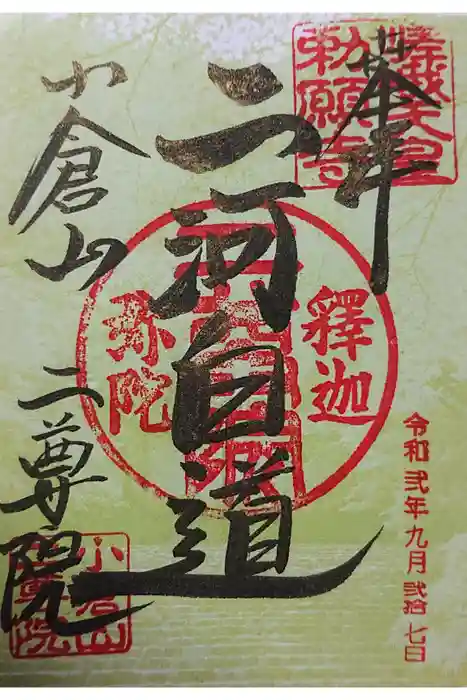 奉拝
嵯峨天皇
勅願寺
二河白道
釋迦
弥陀
小倉山
二尊院
小倉山
二尊院
令和弐年九月弐拾七日